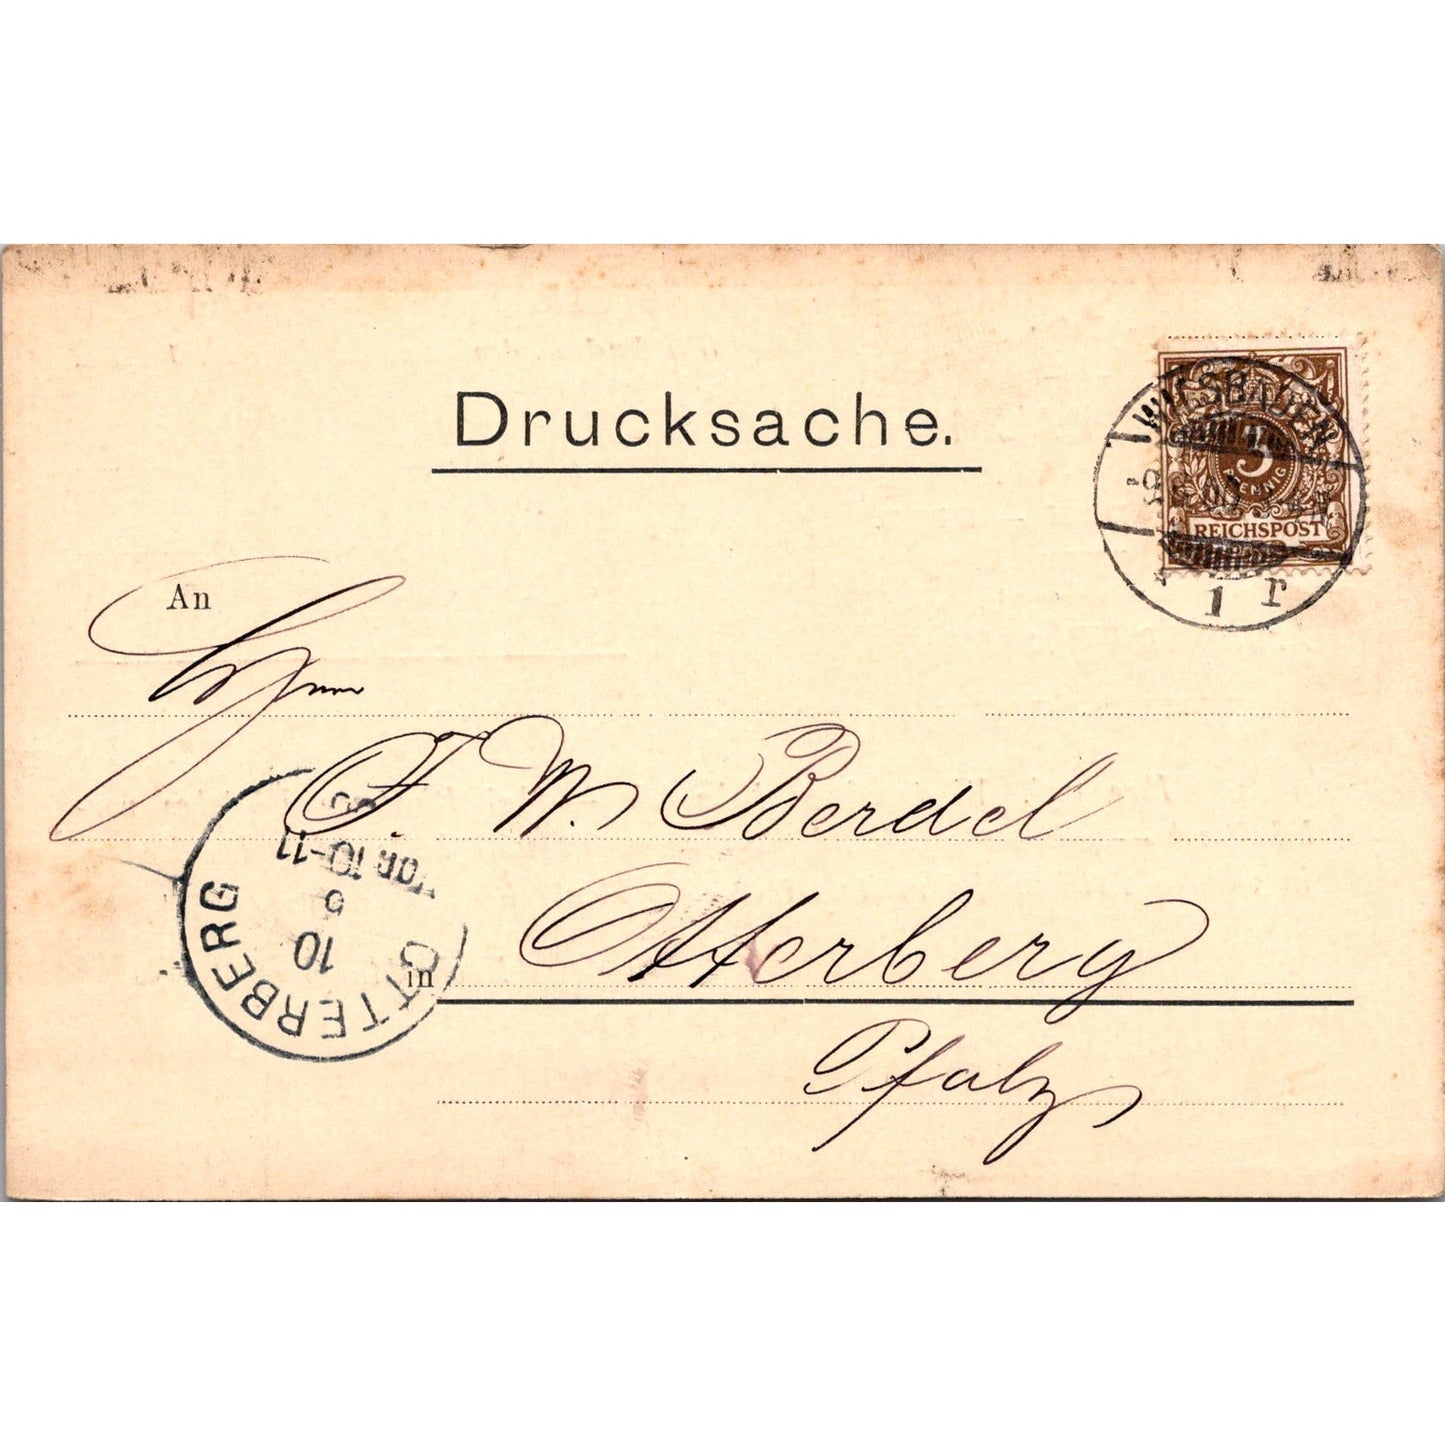 Drucksache.
WIESBADEN
1 r
3
PFENNIG
REICHSPOST
An
Herrn
F. W. Berdel
in Otterberg
Pfalz
OTTERBERG
10
5
10-11